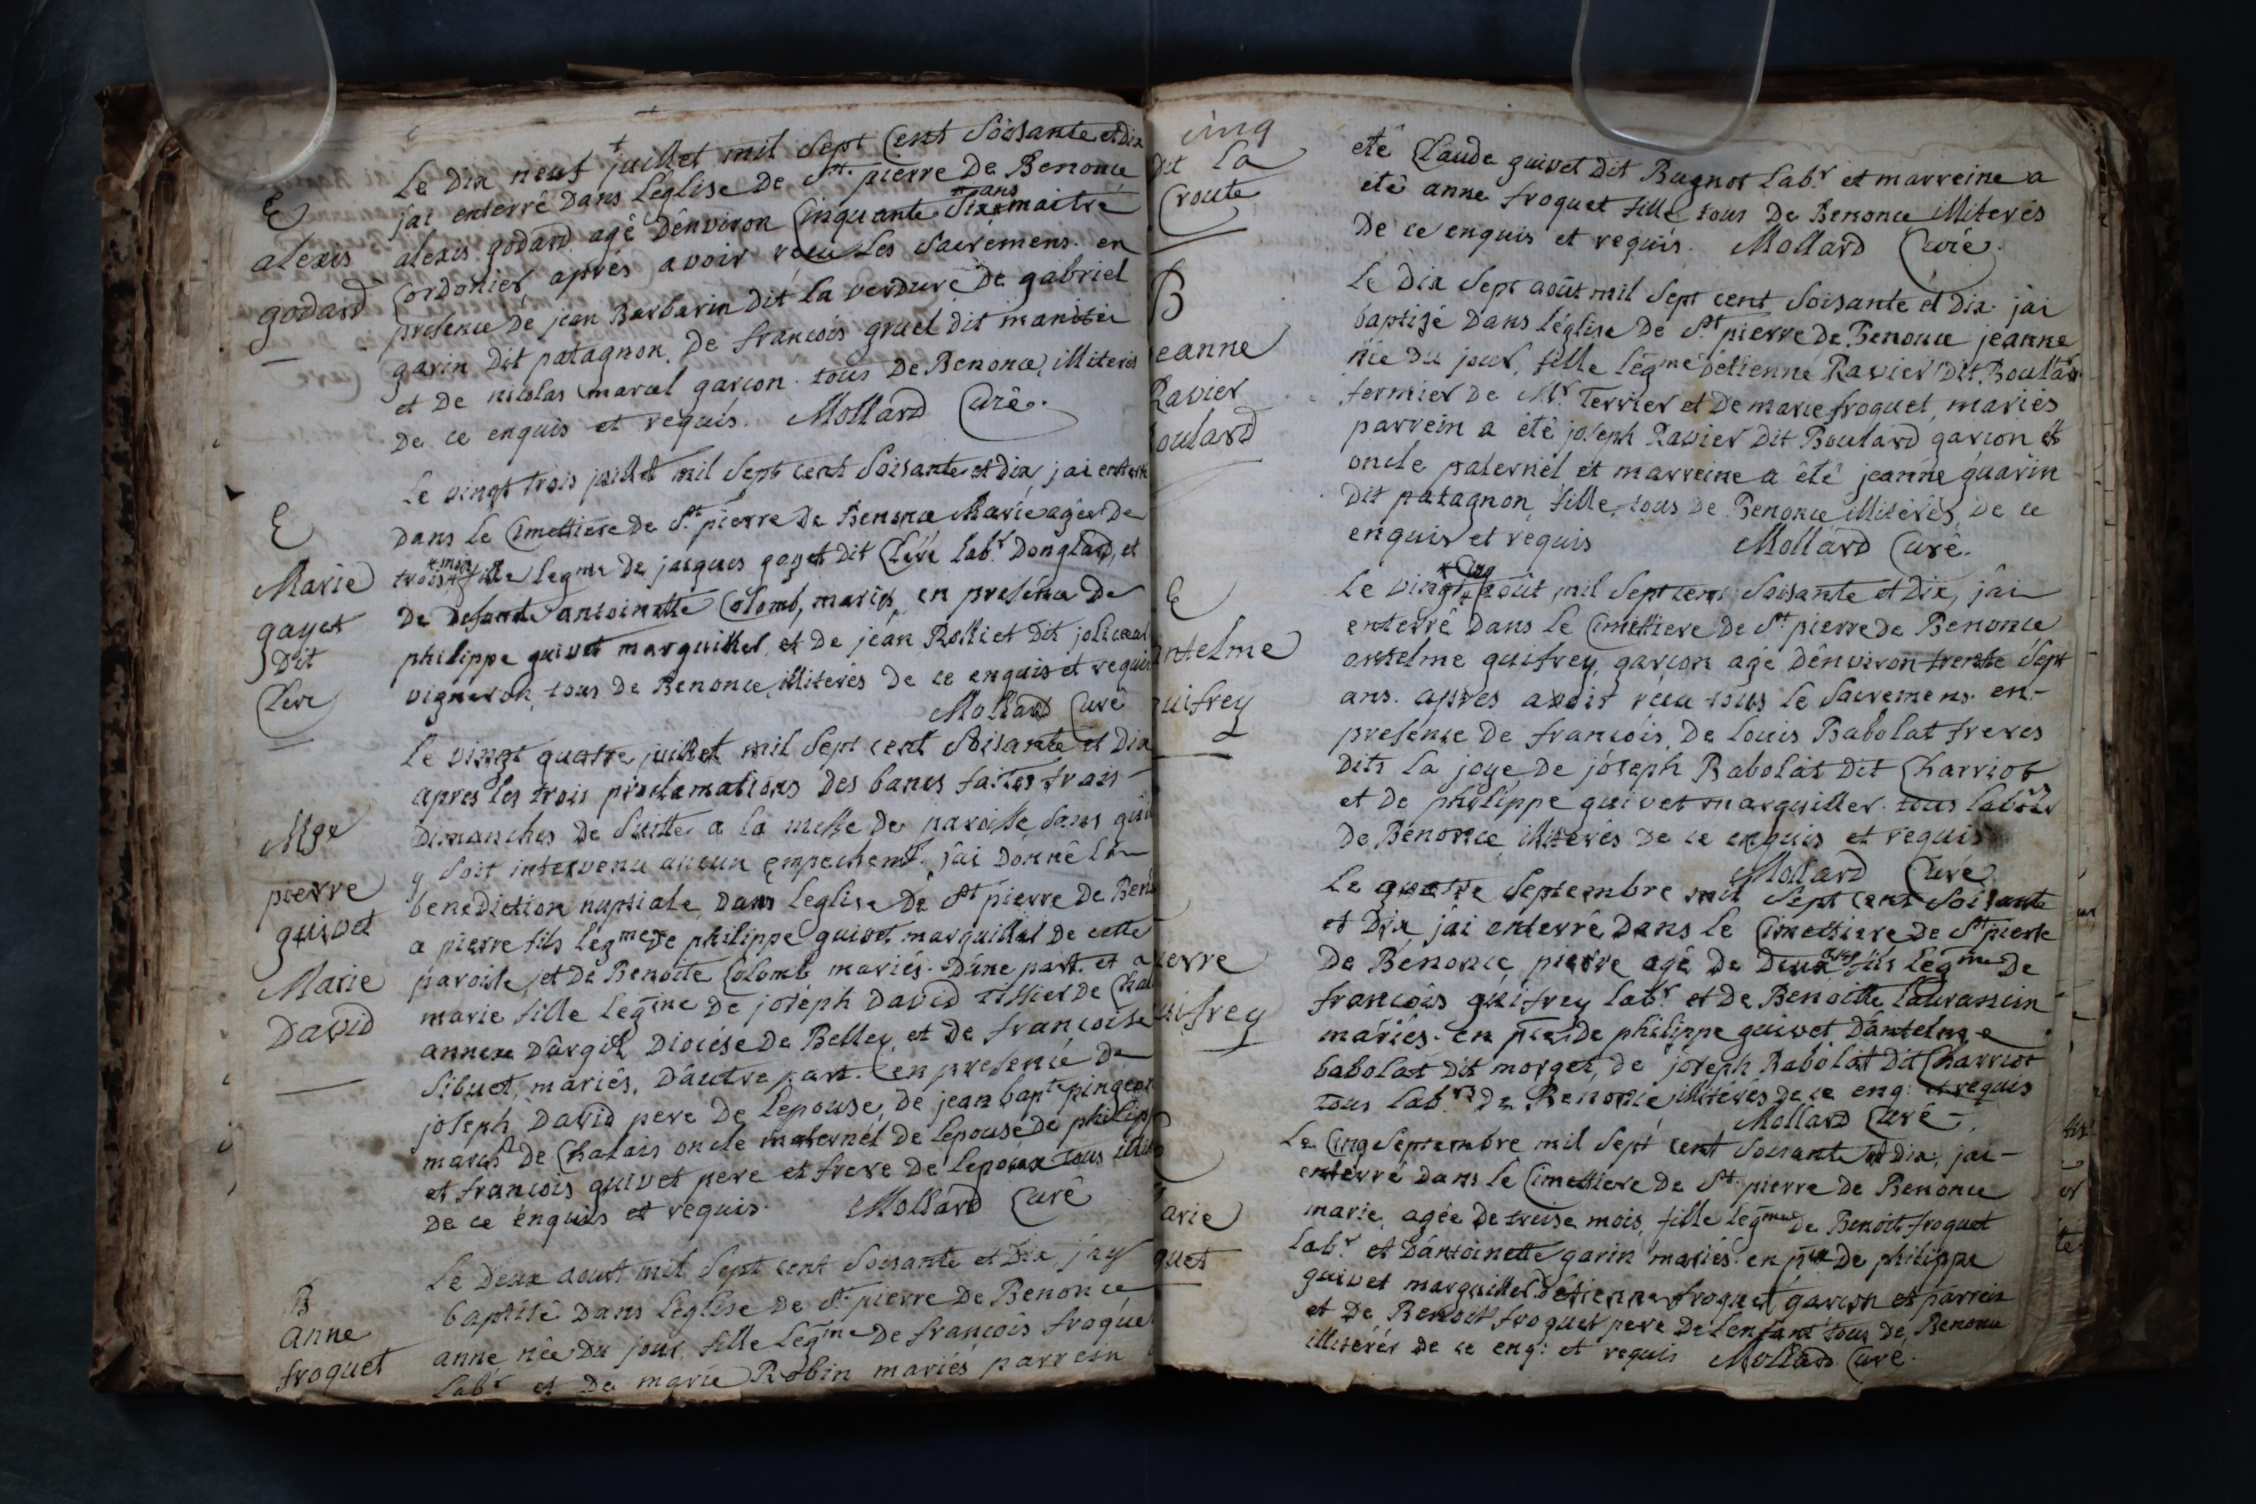 E
alexis
godard
Le dix neuf juillet mil Sept Cent Soisante et dix
jai enterrê dans L'eglise de St. pierre de Benonce
alexis godard agê dênviron Cinquante Six ans maitre
Cordonier aprés avoir recu Les Sacrémens. en
presence de jean Barbarin dit la verdure de gabriel
garin dit patagnon, de francois gruel dit
et de nicolas marcel garcon. tous de Benonce, illiterés
de ce enquis et requis. Mollard Curê.
E
Marie
gayet
dit
Clere
Le vingt trois juillet mil Sept cent Soisante et dix, jai enterré
dans le Cimettiere de St. pierre de Benonce Marie agée de
trois mois fille legme de jacques goyet dit Clére labr. Donglard, et
de defunte antoinette Colomb, mariés, en presence de
philippe guivet marguiller, et de jean Rolliet dit jolicoeur
vigneron, tous de Benonce, illiterés de ce enquis et requis
Mollard Curê
Mge
pierre
guivet
Marie
David
Le vingt quatre juillet mil Sept cent Soisante et dix
apres les trois proclamations des bancs faites trois
dimanches de Suitte a la messe de paroisse, sans quil
y soit intervenu aucun empechemt. jâi donnê la
benediction nuptiale dans leglise de St pierre de Ben
a pierre fils legme de philippe guivet marguiller de cette
paroisse, et de Benoite Colomb mariés. d'une part. et a
marie fille legme de joséph David de Chal
annexe dârgil diocése de Belley, et de francoise
Sibuet, mariés, d'autre part. en presence de
joseph David pere de Lepouse, de jean bapte pingeon
march de Chalais oncle maternel de Lepouse de philippe
et francois guivet pere et frere de Lepoux tous
de ce enquis et requis. Mollard Curê
B
anne
froquet
Le deux aoust mil Sept cent Soisante et dix, j'ay
baptisê dans l'eglise de St. pierre de Benonce
anne née du jour, fille legme de francois froquet
labr. et de marie Robin mariés, parrein
cinq
dit la
Croute
etê Claude guivet dit Bugnot labr et marreine a
etê anne froquet fille tous de Benonce illiterés
de ce enquis et requis. Mollard Curé.
B
eanne
Ravier
oulard
Le dix Sept août mil Sept cent Soisante et dix jâi
baptizé dans léglise de St pierre de Benonce jeanne
née du jour, fille legme détienne Ravier dit Boulard
fermier de Mr. Terrier et de marie froquet, mariés
parrein a êtê joseph Ravier dit Boulard garcon et
oncle paternel et marreine a êtê jeanne guarin
dit patagnon, fille, tous de Benonce illiterés, de ce
enquis et requis Mollard Curê.
E
antelme
uifrey
Le vingt Cinq août mil Sept cent Soisante et dix, jâi
enterrê dans le Cimettiere de St pierre de Benonce
antelme guifrey, garcon agé dênviron trente Sept
ans. apres avoir recu tous le Sacremens. en
presence de francois, de Louis Babolat freres
dits la joye, de joseph Babolat dit Charriot
et de philippe guivet marguiller. tous labrs
de Benonce, illiterés de ce enquis et requis
Mollard Curé
ierre
uifrey
Le quatre Septembre mil Sept cent Soisante
et dix jai enterré dans le Cimettiere de St pierre
de Bénonce, pierre agé de deux ans fils legme de
francois guifrey labr. et de Benoitte
mariés. en pce de philippe guivet d'antelme
babolat dit morget, de joseph Babolat dit Charriot
tous labrs de Benonce illiterés de ce enq: et requis
Mollard Curé
arie
quet
Le Cinq Septembre mil Sept cent Soisante et dix, jai
enterré dans le Cimettiere de St. pierre de Benonce
marie, agée de treise mois, fille legme de Benoit froquet
labr. et d'antoinette garin mariés. en pce de philippe
guivet marguiller d'etienne froquet garcon et parrein
et de Benoit froquet pere de l'enfant tous de Benonce
illiterés de ce enq: et requis Mollard Curé.